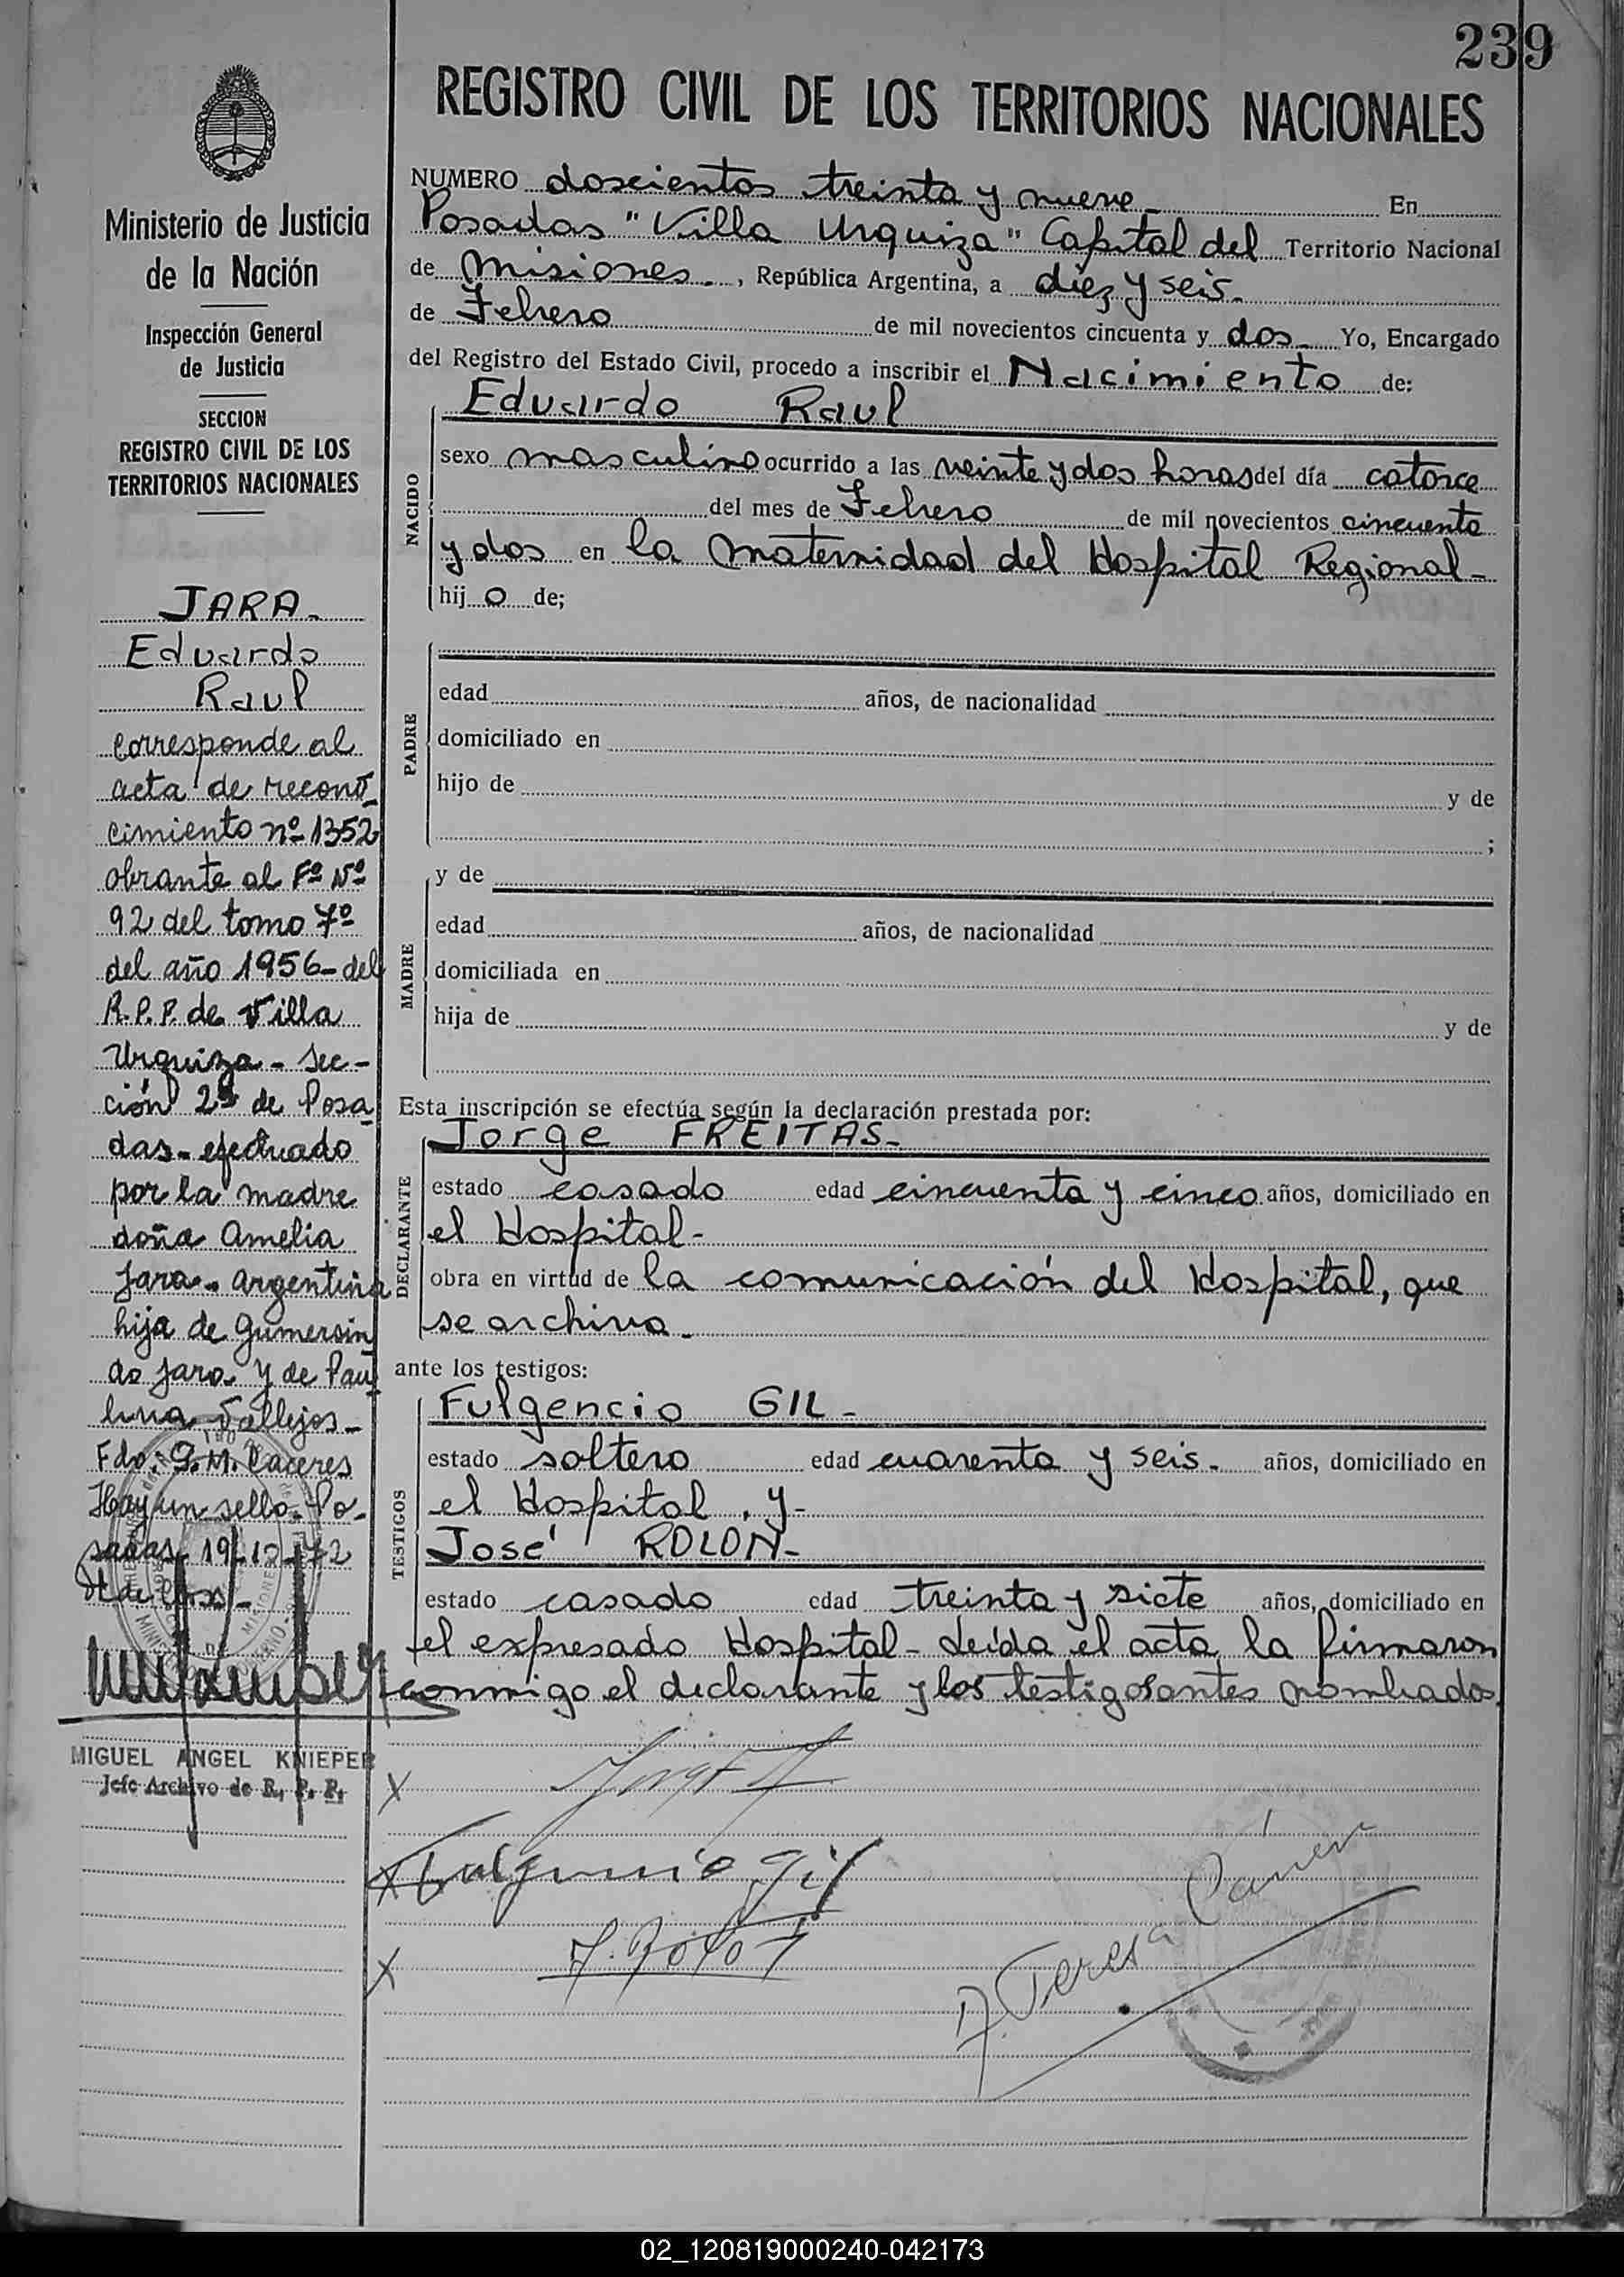 239
REGISTRO CIVIL DE LOS TERRITORIOS NACIONALES
Ministerio de Justicia
de la Nación
Inspección General
de Justicia
SECCION
REGISTRO CIVIL DE LOS
TERRITORIOS NACIONALES
JARA-
Eduardo
Raul
Corresponde al
acta de recono
cimiento nº 1352
obrante al Fº Nº
92 del tomo 7º
del año 1956- del
R.P.P. de Villa
Urquiza - Sec-
ción 2ª de Posa
das- efectuado
por la madre
doña Amelia
Jara- argentina
hija de Gumersin
do Jara y de Pau
lina Vallejos-
Fdo: G.M. Caceres
Hay un sello. Po-
sadas 19/10-72
MIGUEL ANGEL KNIEPER
Jefe Archivo de R. P. P.
NUMERO doscientos treinta y nueve- En
Posadas "Villa Urquiza" Capital del Territorio Nacional
de Misiones-, República Argentina, a diez y seis-
de Febrero de mil novecientos cincuenta y dos- Yo, Encargado
del Registro del Estado Civil, procedo a inscribir el Nacimiento de:
Eduardo Raul
NACIDO
sexo masculino ocurrido a las veinte y dos horas del día catorce
del mes de Febrero de mil novecientos cincuenta
y dos en la maternidad del Hospital Regional-
hij o de;
PADRE
edad años, de nacionalidad
domiciliado en
hijo de y de
;
MADRE
y de
edad años, de nacionalidad
domiciliada en
hija de y de
Esta inscripción se efectúa según la declaración prestada por:
DECLARANTE
Jorge FREITAS-
estado casado edad cincuenta y cinco años, domiciliado en
el Hospital-
obra en virtud de la comunicación del Hospital, que
se archiva-
ante los testigos:
TESTIGOS
Fulgencio GIL-
estado soltero edad cuarenta y seis- años, domiciliado en
el Hospital, y-
José ROLON-
estado casado edad treinta y siete años, domiciliado en
el expresado Hospital- Leída el acta, la firmaron
conmigo el declarante y los testigos antes nombrados.
X
X Fulgencio Gil
X J. Rolon
Teresa
02_120819000240-042173